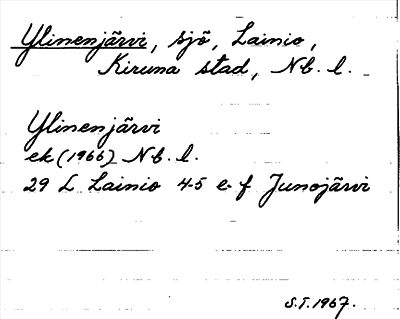 Ylinenjärvi, sjö, Lainio,
Kiruna stad, Nb. l.
Ylinenjärvi
ek (1966) Nb. l.
29 L Lainio 4-5 e-f Junojärvi
S.T. 1967.